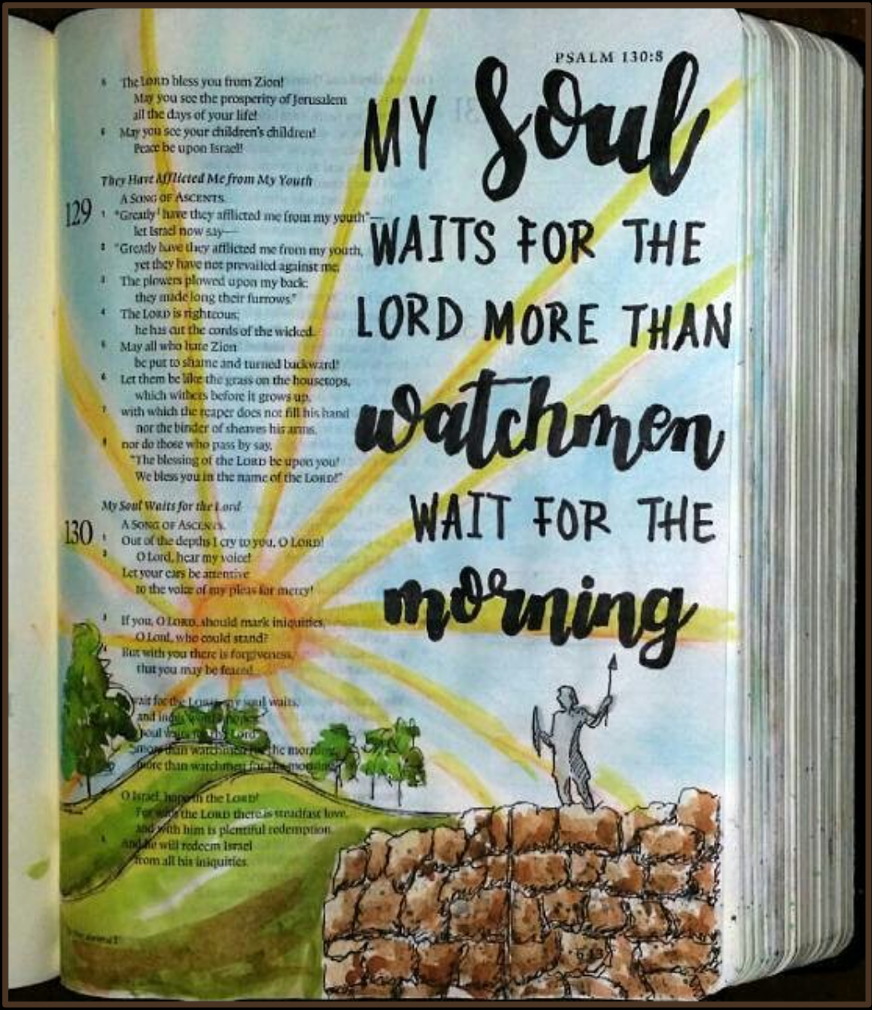 PSALM 130:8
5 The LORD bless you from Zion!
May you see the prosperity of Jerusalem
all the days of your life!
6 May you see your children's children!
Peace be upon Israel!
They Have Afflicted Me from My Youth
A SONG OF ASCENTS.
129 1 "Greatly1 have they afflicted me from my youth"—
let Israel now say—
2 "Greatly have they afflicted me from my youth,
yet they have not prevailed against me.
3 The plowers plowed upon my back;
they made long their furrows."
4 The LORD is righteous;
he has cut the cords of the wicked.
5 May all who hate Zion
be put to shame and turned backward!
6 Let them be like the grass on the housetops,
which withers before it grows up,
7 with which the reaper does not fill his hand
nor the binder of sheaves his arms,
8 nor do those who pass by say,
"The blessing of the LORD be upon you!
We bless you in the name of the LORD!"
My Soul Waits for the Lord
130 A SONG OF ASCENTS.
1 Out of the depths I cry to you, O LORD!
2 O Lord, hear my voice!
Let your ears be attentive
to the voice of my pleas for mercy!
3 If you, O LORD, should mark iniquities,
O Lord, who could stand?
4 But with you there is forgiveness,
that you may be feared.
wait for the LORD, my soul waits,
and in his word I hope;
soul waits for the Lord
more than watchmen for the morning,
more than watchmen for the morning.
O Israel, hope in the LORD!
For with the LORD there is steadfast love,
and with him is plentiful redemption.
And he will redeem Israel
from all his iniquities.
MY Soul
WAITS FOR THE
LORD MORE THAN
watchmen
WAIT FOR THE
morning